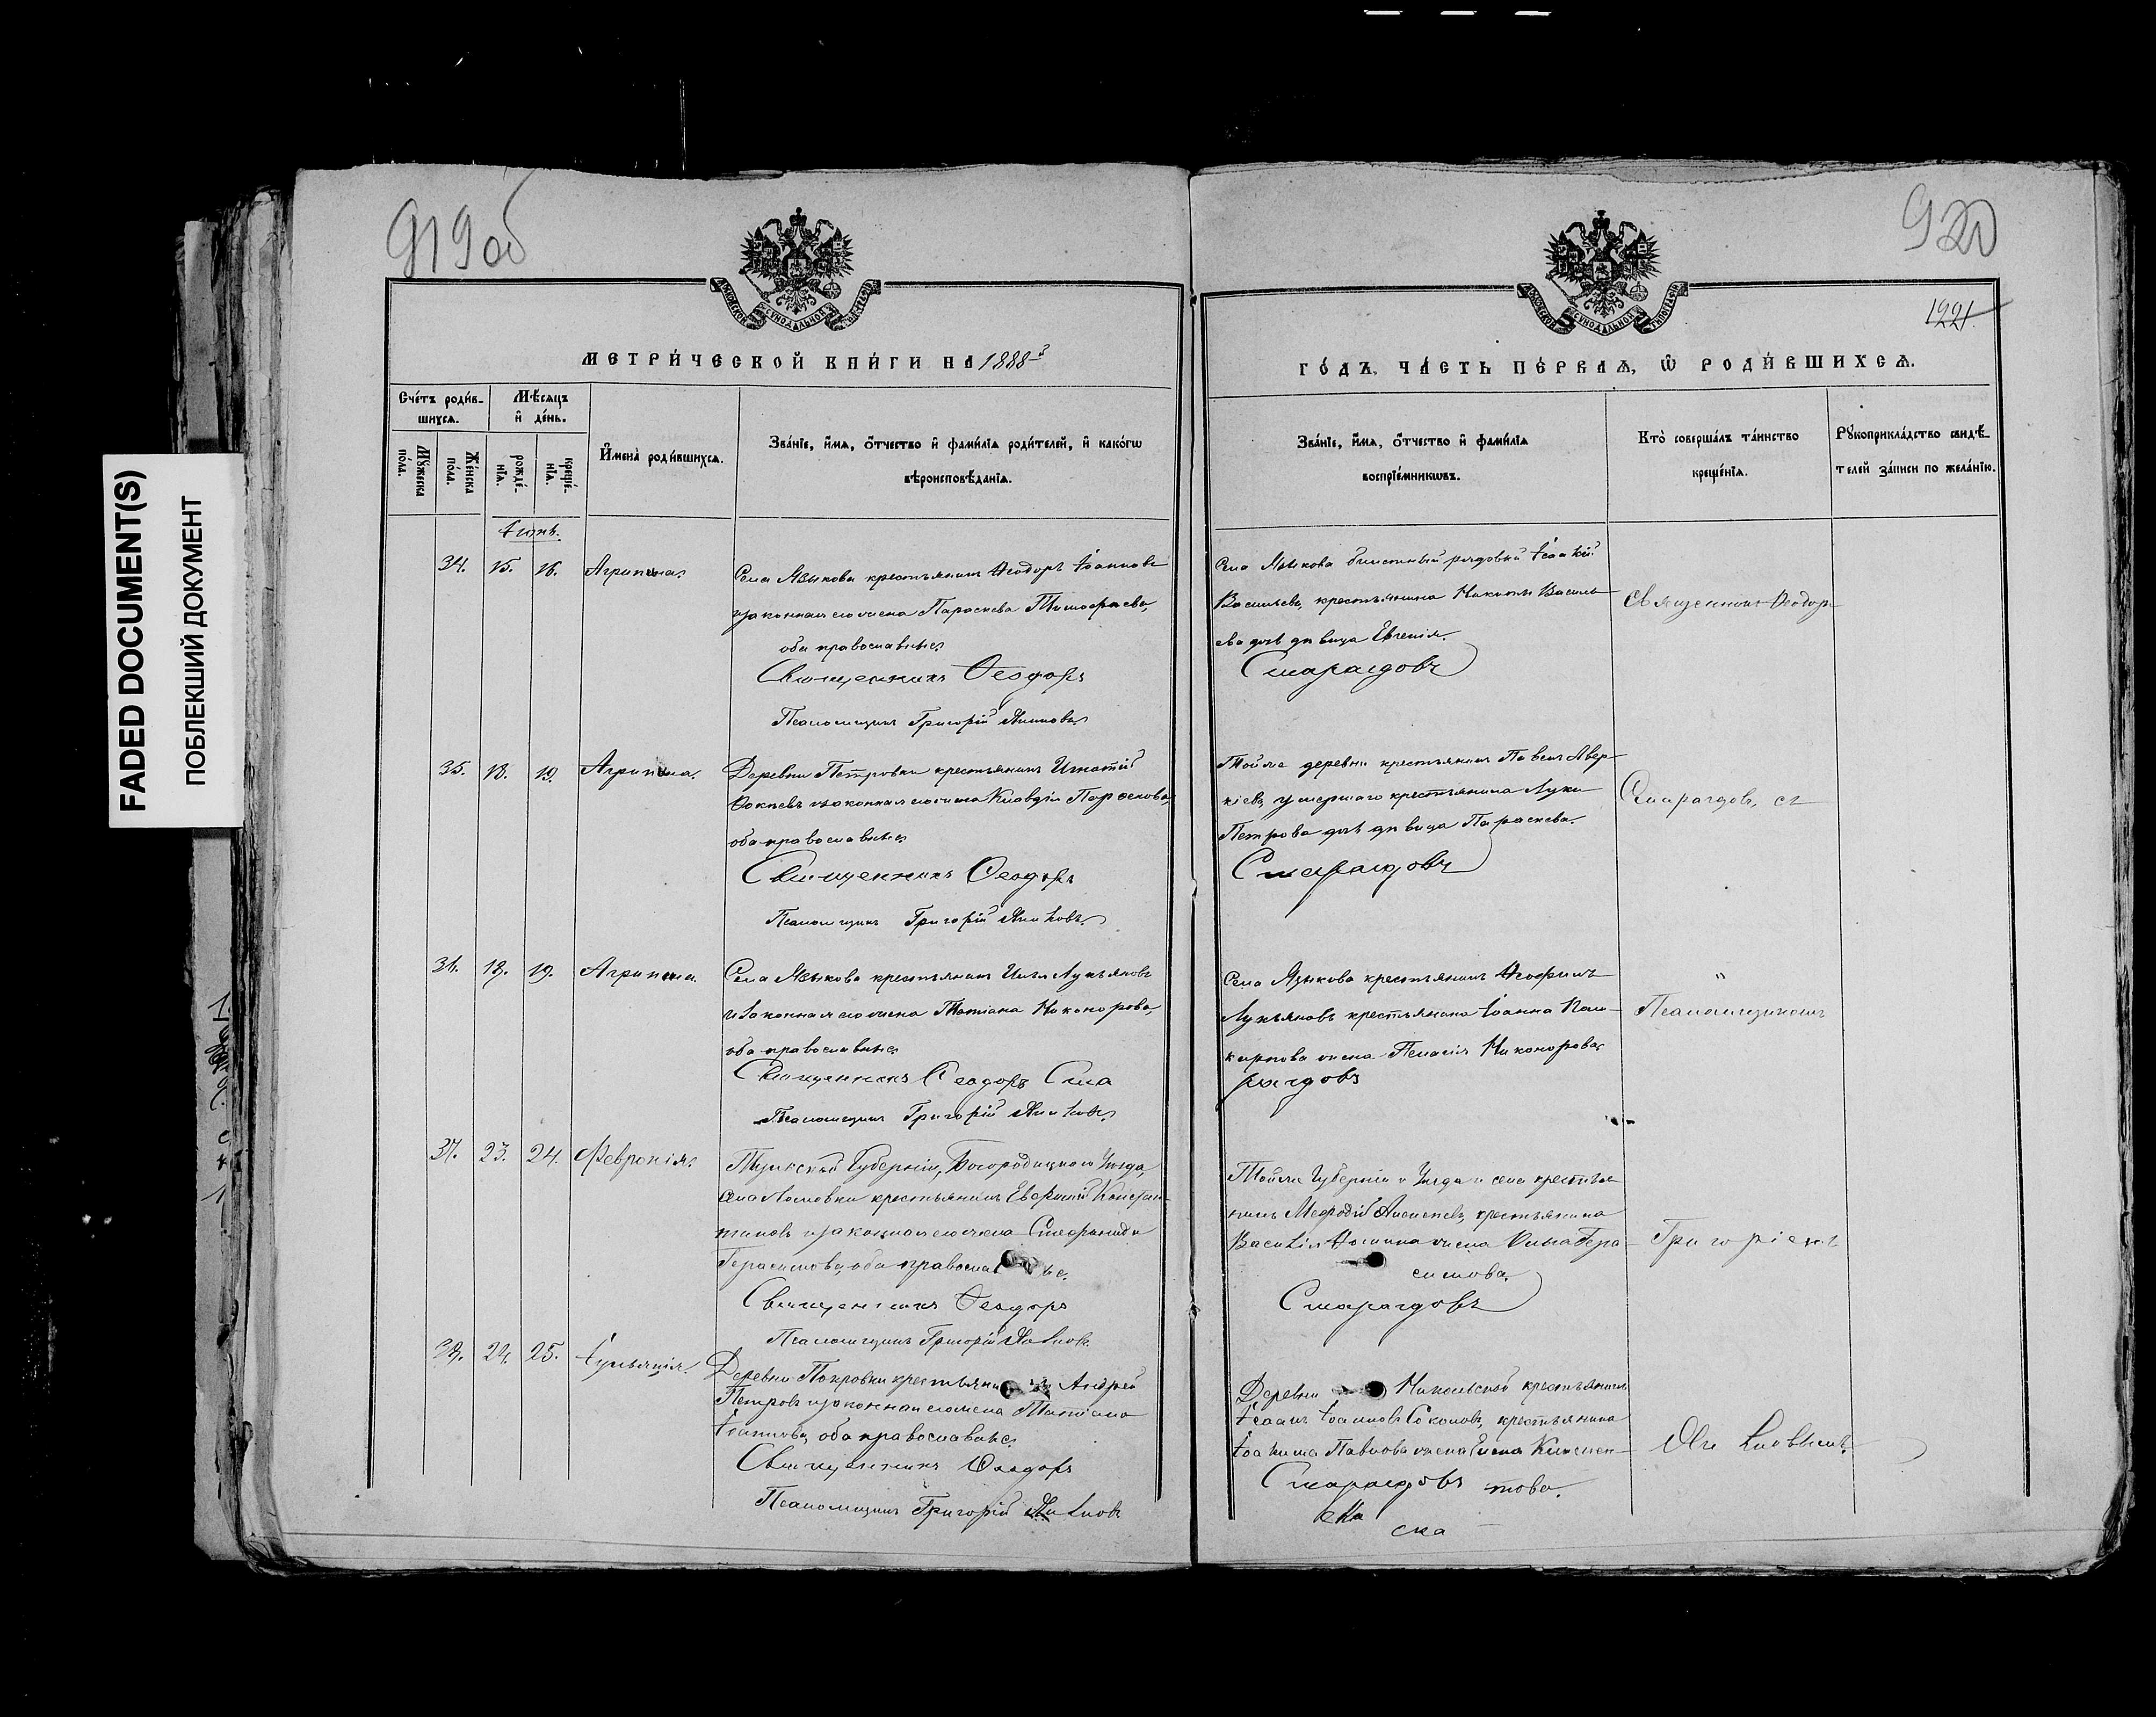 FADED DOCUMENT(S)
ПОБЛЕКШИЙ ДОКУМЕНТ
919об
920
1221.
МЕТРИ́ЧЕСКОЙ КНИ́ГИ НА 1888й
ГО́ДЪ, ЧА́СТЬ ПЕ́РВАѦ, Ѡ҆ РОДИ́ВШИХСѦ.
Сче́тъ роди́вшихсѧ.
Мѣ́сѧцъ и҆ де́нь.
Мꙋ́жеска по́ла.
Же́нска по́ла.
рожде́нїѧ.
креще́нїѧ.
И҆мена̀ роди́вшихсѧ.
Зва́нїе, и҆́мѧ, ѻ҆́тчество и҆ фами́лїѧ роди́телей, и҆ како́гѡ
вѣроисповѣ́данїѧ.
Зва́нїе, и҆́мѧ, ѻ҆́тчество и҆ фами́лїѧ
воспрїе́мникѡвъ.
Кто̀ соверша́лъ та́инство
креще́нїѧ.
Рꙋкоприкла́дство свидѣ́-
телей за́писи по жела́нїю.
Іюнь.
34. 15. 16. Агрипина.
Села Языкова крестьянинъ Ѳеодоръ Іоанновъ
и законная его жена Параскева Тимофеева,
оба православные.
Священникъ Ѳеодоръ
Псаломщикъ Григорій
Села Языкова билетный рядовой Исаакій
Васильевъ, крестьянина Никиты Василь-
ева дочь девица Евгенія.
Смарагдовъ
Священникъ Ѳеодоръ
35. 18. 19. Агрипина.
Деревни Петровки крестьянинъ Игнатій
Фокиевъ и законная его жена Клавдія
оба православные.
Священникъ Ѳеодоръ
Псаломщикъ Григорій
Тойже деревни крестьянинъ Павелъ Авер-
кіевъ, умершаго крестьянина Луки
Петрова дочь девица Параскева.
Смарагдовъ
Смарагдовъ, съ
36. 18. 19. Агрипина.
Села Языкова крестьянинъ Илья Лукьяновъ
и законная его жена Татіана Никонорова,
оба православные.
Священникъ Ѳеодоръ Сма
Псаломщикъ Григорій
Села Языкова крестьянинъ Ѳеофилъ
Лукьяновъ крестьянина Іоанна Поли-
карпова жена Пелагія Никонорова.
рагдовъ
"
Псаломщикомъ
37. 23. 24. Февронія.
Тульской Губерніи, Богородицкого Уезда,
села Ломовки крестьянинъ Евфимій Констан-
тиновъ и законная его жена Стефанида
Герасимова, оба православные.
Священникъ Ѳеодоръ
Псаломщикъ Григорій
Тойже Губерніи и Уезда и села крестья-
нинъ Меѳодій Алексеевъ, крестьянина
Василія жена Ольга Гера-
симова.
Смарагдовъ
Григоріемъ
38. 24. 25. Іуліанія.
Деревни Покровки крестьянинъ Андрей
Петровъ и законная его жена Татіана
Іоаннова, оба православные.
Священникъ Ѳеодоръ
Псаломщикъ Григорій
Деревни Никольской крестьянинъ
Іоаннъ Іоанновъ Соколовъ, крестьянина
Іоакима Павлова жена Елена Климен-
това.
Смарагдовъ
ска